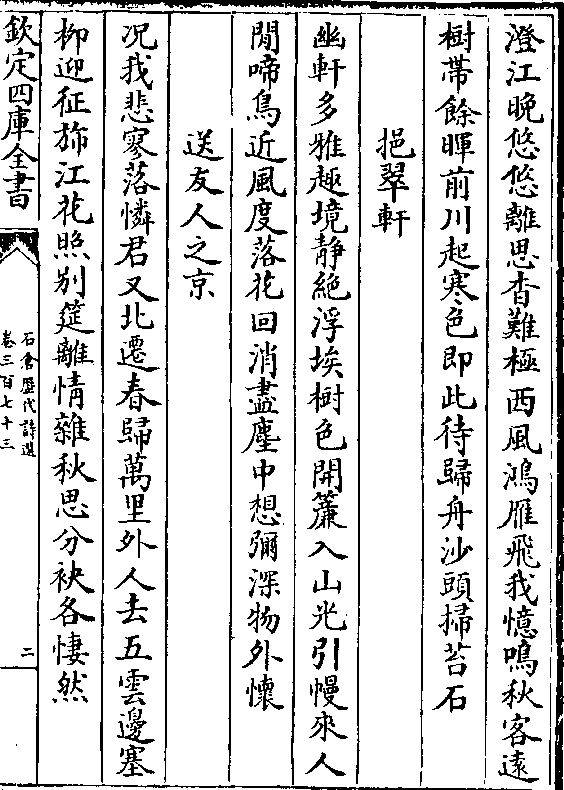 澄江晩悠悠離思杳難極西風鴻雁飛我憶鳴秋客遠
樹帶餘暉前川起寒色即此待歸舟沙頭掃苔石
挹翠軒
幽軒多雅趣境靜絶浮埃樹色開簾入山光引幔來人
閒啼鳥近風度落花回消盡塵中想彌深物外懷
送友人之京
况我悲寥落憐君又北遷春歸萬里外人去五雲邊塞
柳迎征旆江花照别筵離情雜秋思分袂各悽然
欽定四庫全書
石倉歷代詩選
卷三百七十三
二